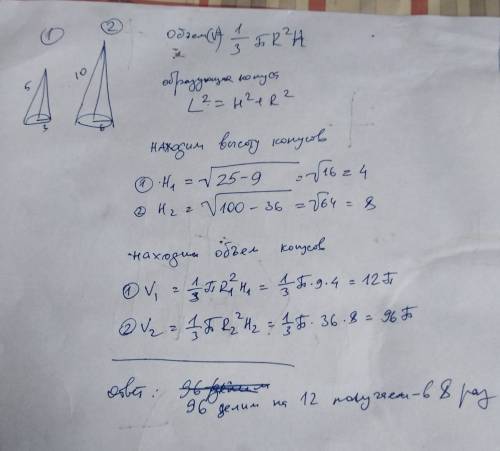 ① ② Объем(V) 1/3 π R² H
5 10
3 6
образующая конуса
L² = H² + R²
находим высоту конусов
① H₁ = √25 - 9 = √16 = 4
② H₂ = √100 - 36 = √64 = 8
находим объем конусов
① V₁ = 1/3 π R₁² H₁ = 1/3 π · 9 · 4 = 12 π
② V₂ = 1/3 π R₂² H₂ = 1/3 π · 36 · 8 = 96 π
ответ: 96 делим
96 делим на 12 получаем - в 8 раз